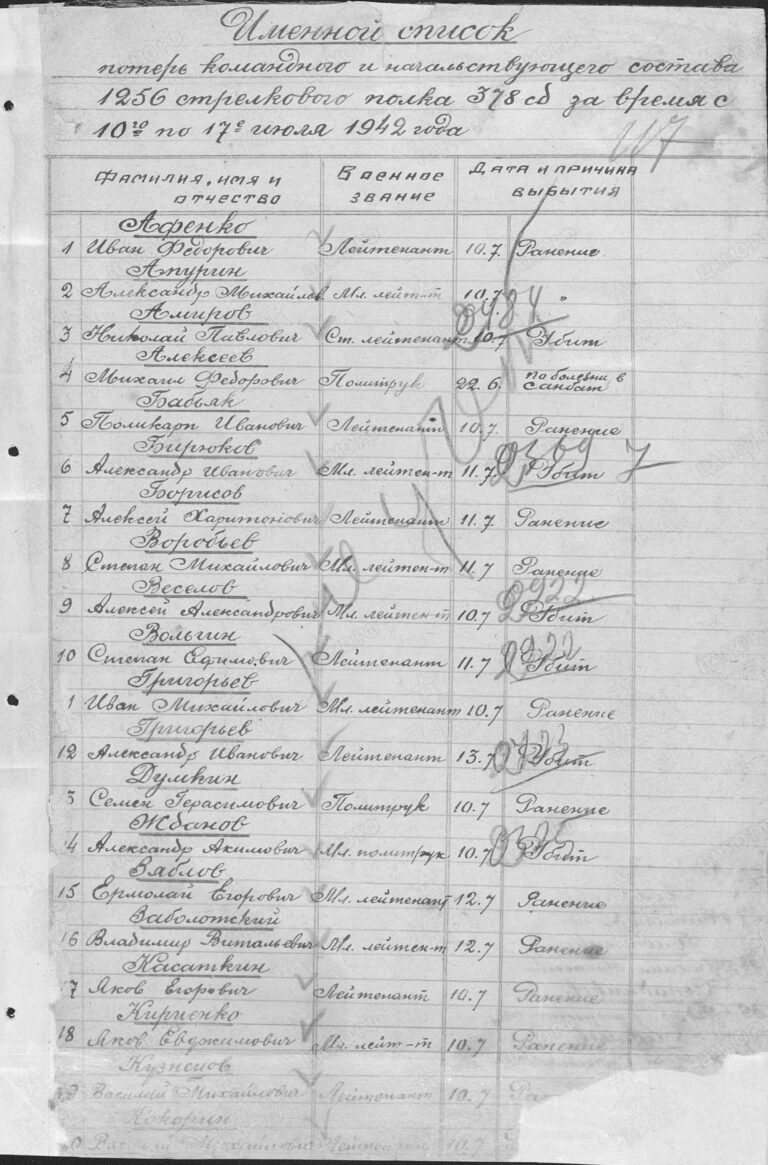 Именной список
потерь командного и начальствующего состава
1256 стрелкового полка 378 сд за время с
10го по 17е июля 1942 года
Фамилия, имя и отчество Военное звание Дата и причина выбытия
Афенко
1 Иван Федорович Лейтенант 10.7. Ранение
Апурин
2 Александр Михайлов. Мл. лейт-т 10.7. "
Амиров
3 Николай Павлович Ст. лейтенант 10.7 Убит
Алексеев
4 Михаил Федорович Политрук 22.6. по болезни в санбат
Бабьяк
5 Поликарп Иванович Лейтенант 10.7. Ранение
Бирюков
6 Александр Иванович Мл. лейтен-т 11.7. Убит
Борисов
7 Алексей Харитонович Лейтенант 11.7. Ранение
Воробьев
8 Степан Михайлович Мл. лейтен-т 11.7 Ранение
Веселов
9 Алексей Александрович Мл. лейтен-т 10.7 Убит
Вольгин
10 Степан Ефимович Лейтенант 11.7 Убит
Григорьев
1 Иван Михайлович Мл. лейтенант 10.7 Ранение
Григорьев
12 Александр Иванович Лейтенант 13.7 Убит
Думкин
3 Семен Герасимович Политрук 10.7 Ранение
Жданов
4 Александр Акимович Мл. политрук 10.7 Убит
Зяблов
15 Ермолай Егорович Мл. лейтенант 12.7 Ранение
Заболотский
16 Владимир Витальевич Мл. лейтен-т 12.7 Ранение
Касаткин
17 Яков Егорович Лейтенант 10.7 Ранение
Кириенко
18 Яков Евджимович Мл. лейт-т 10.7 Ранение
Кузнецов
Василий Михайлович Лейтенант 10.7
Кокорин
Михайлович Лейтенант 10.7